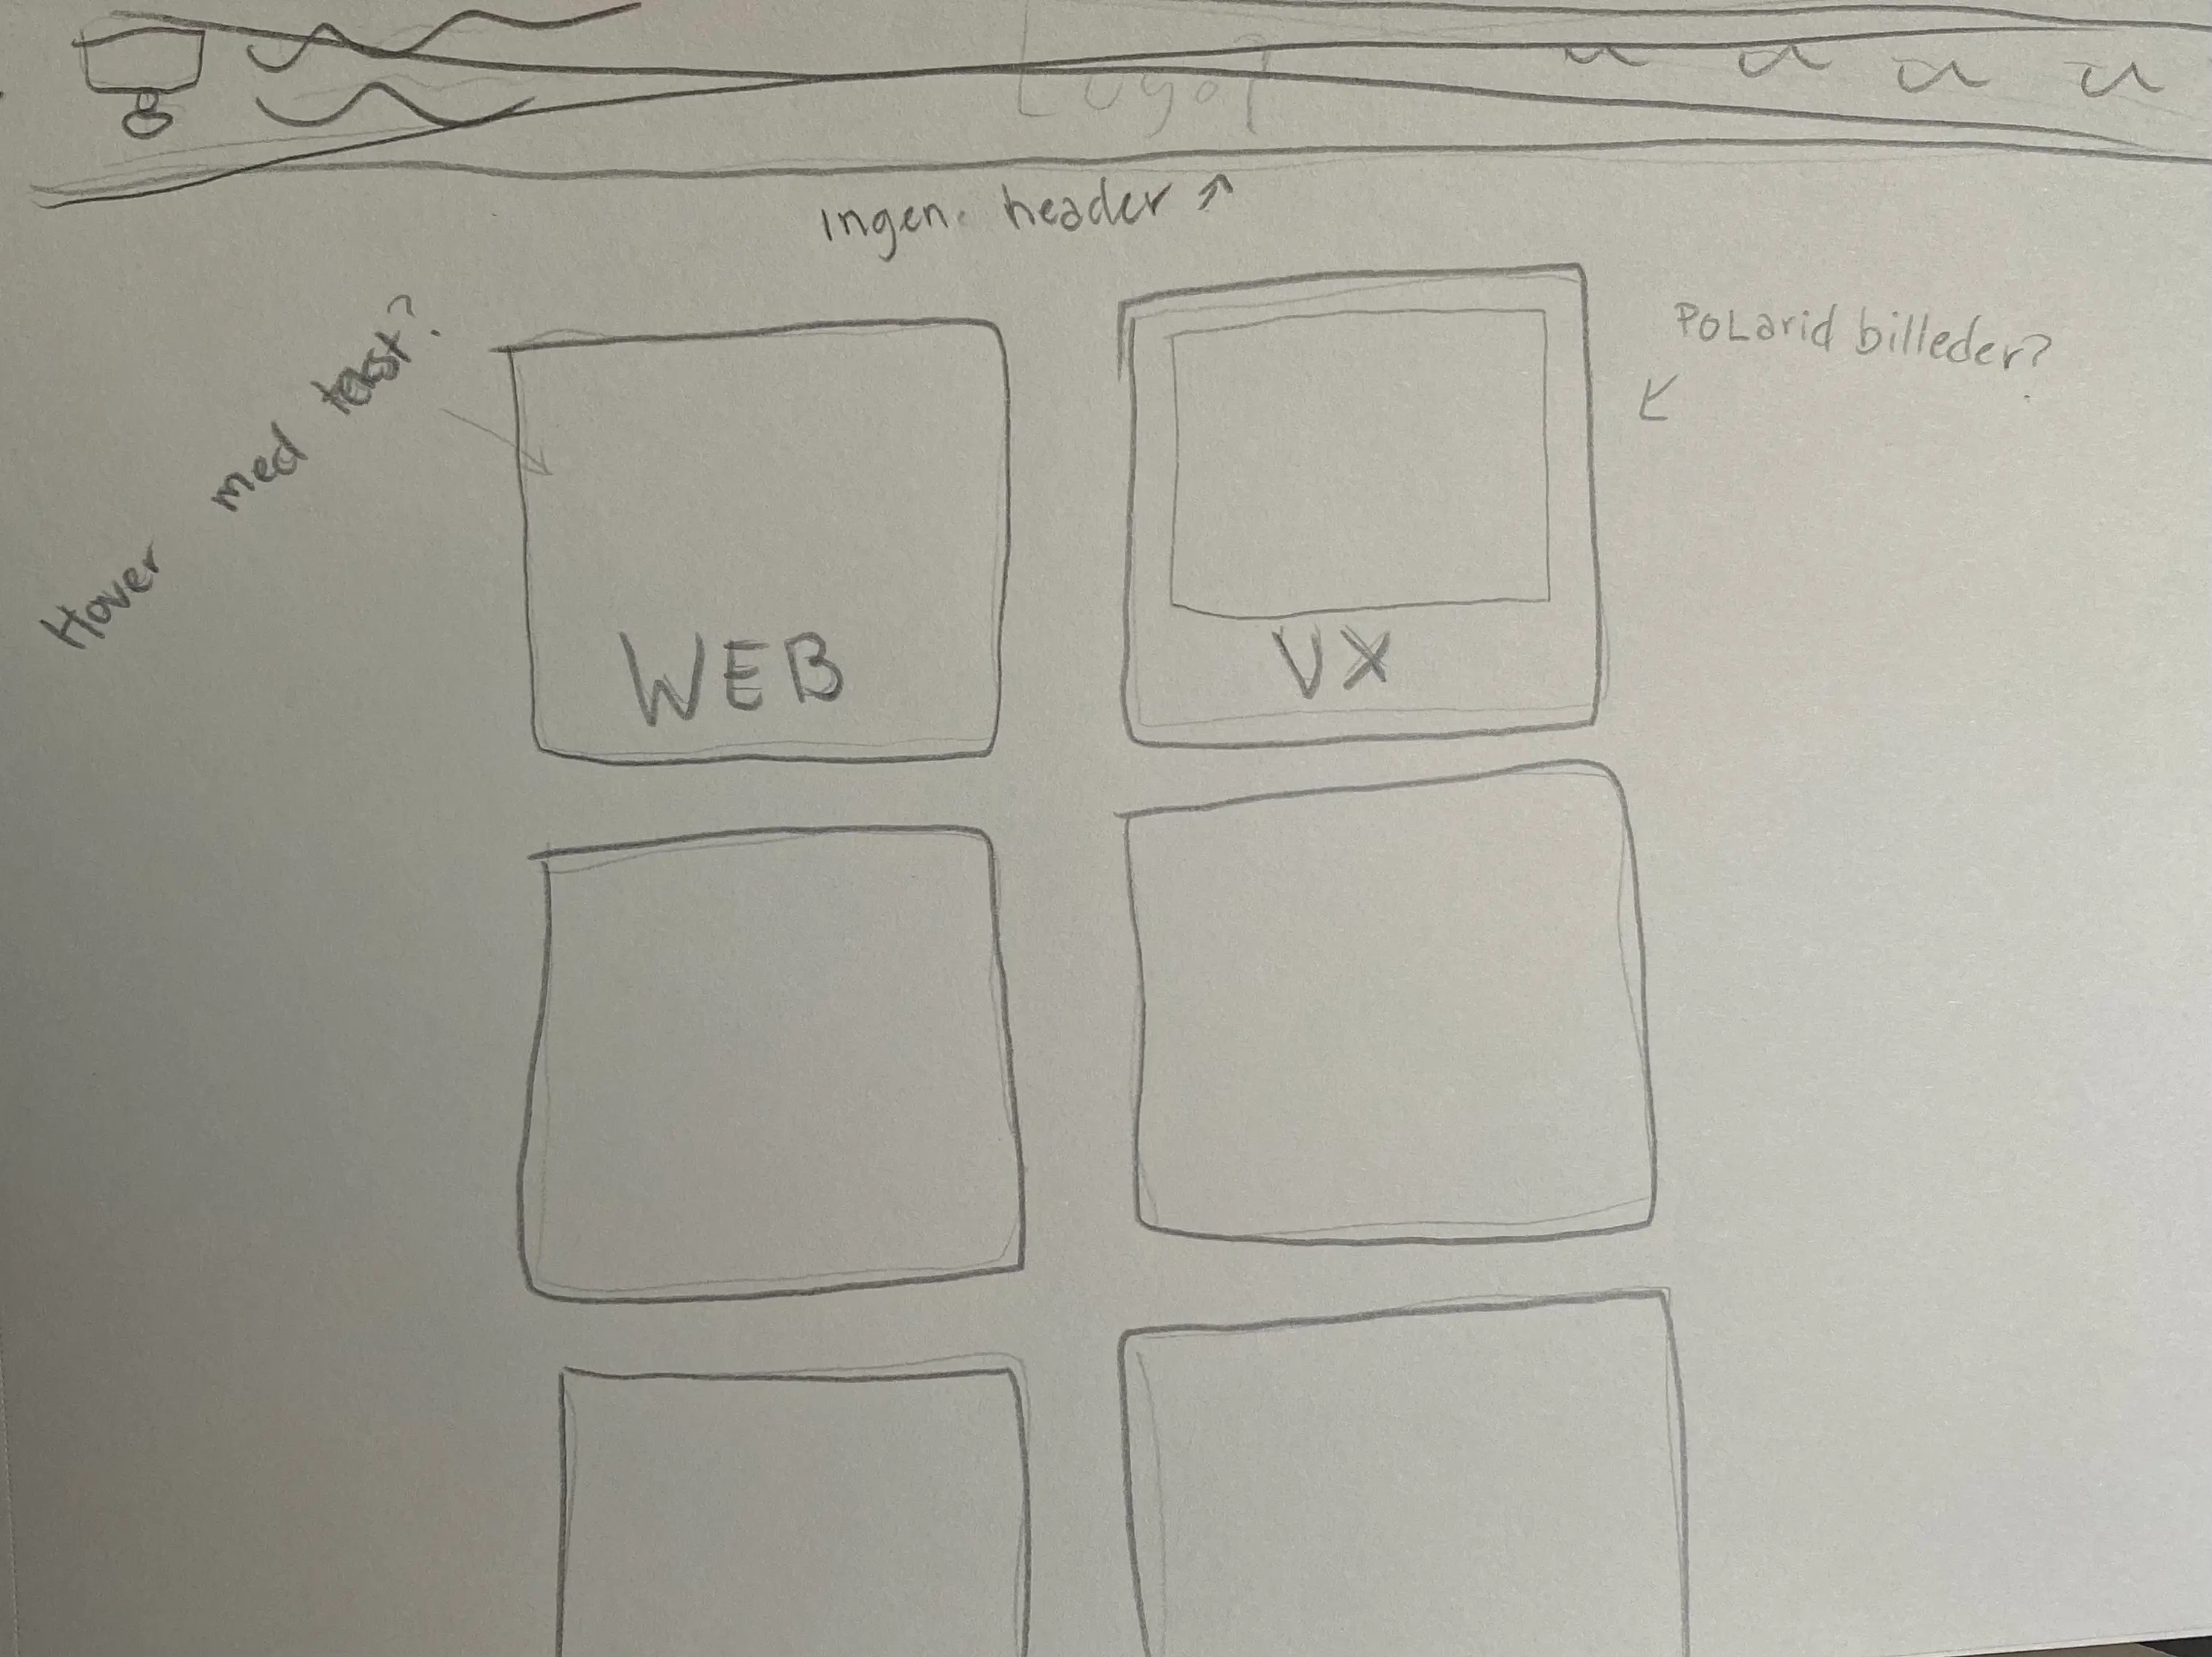 Logo
Ingen header ↑
Hover med tekst?
POLarid billeder?
WEB
UX